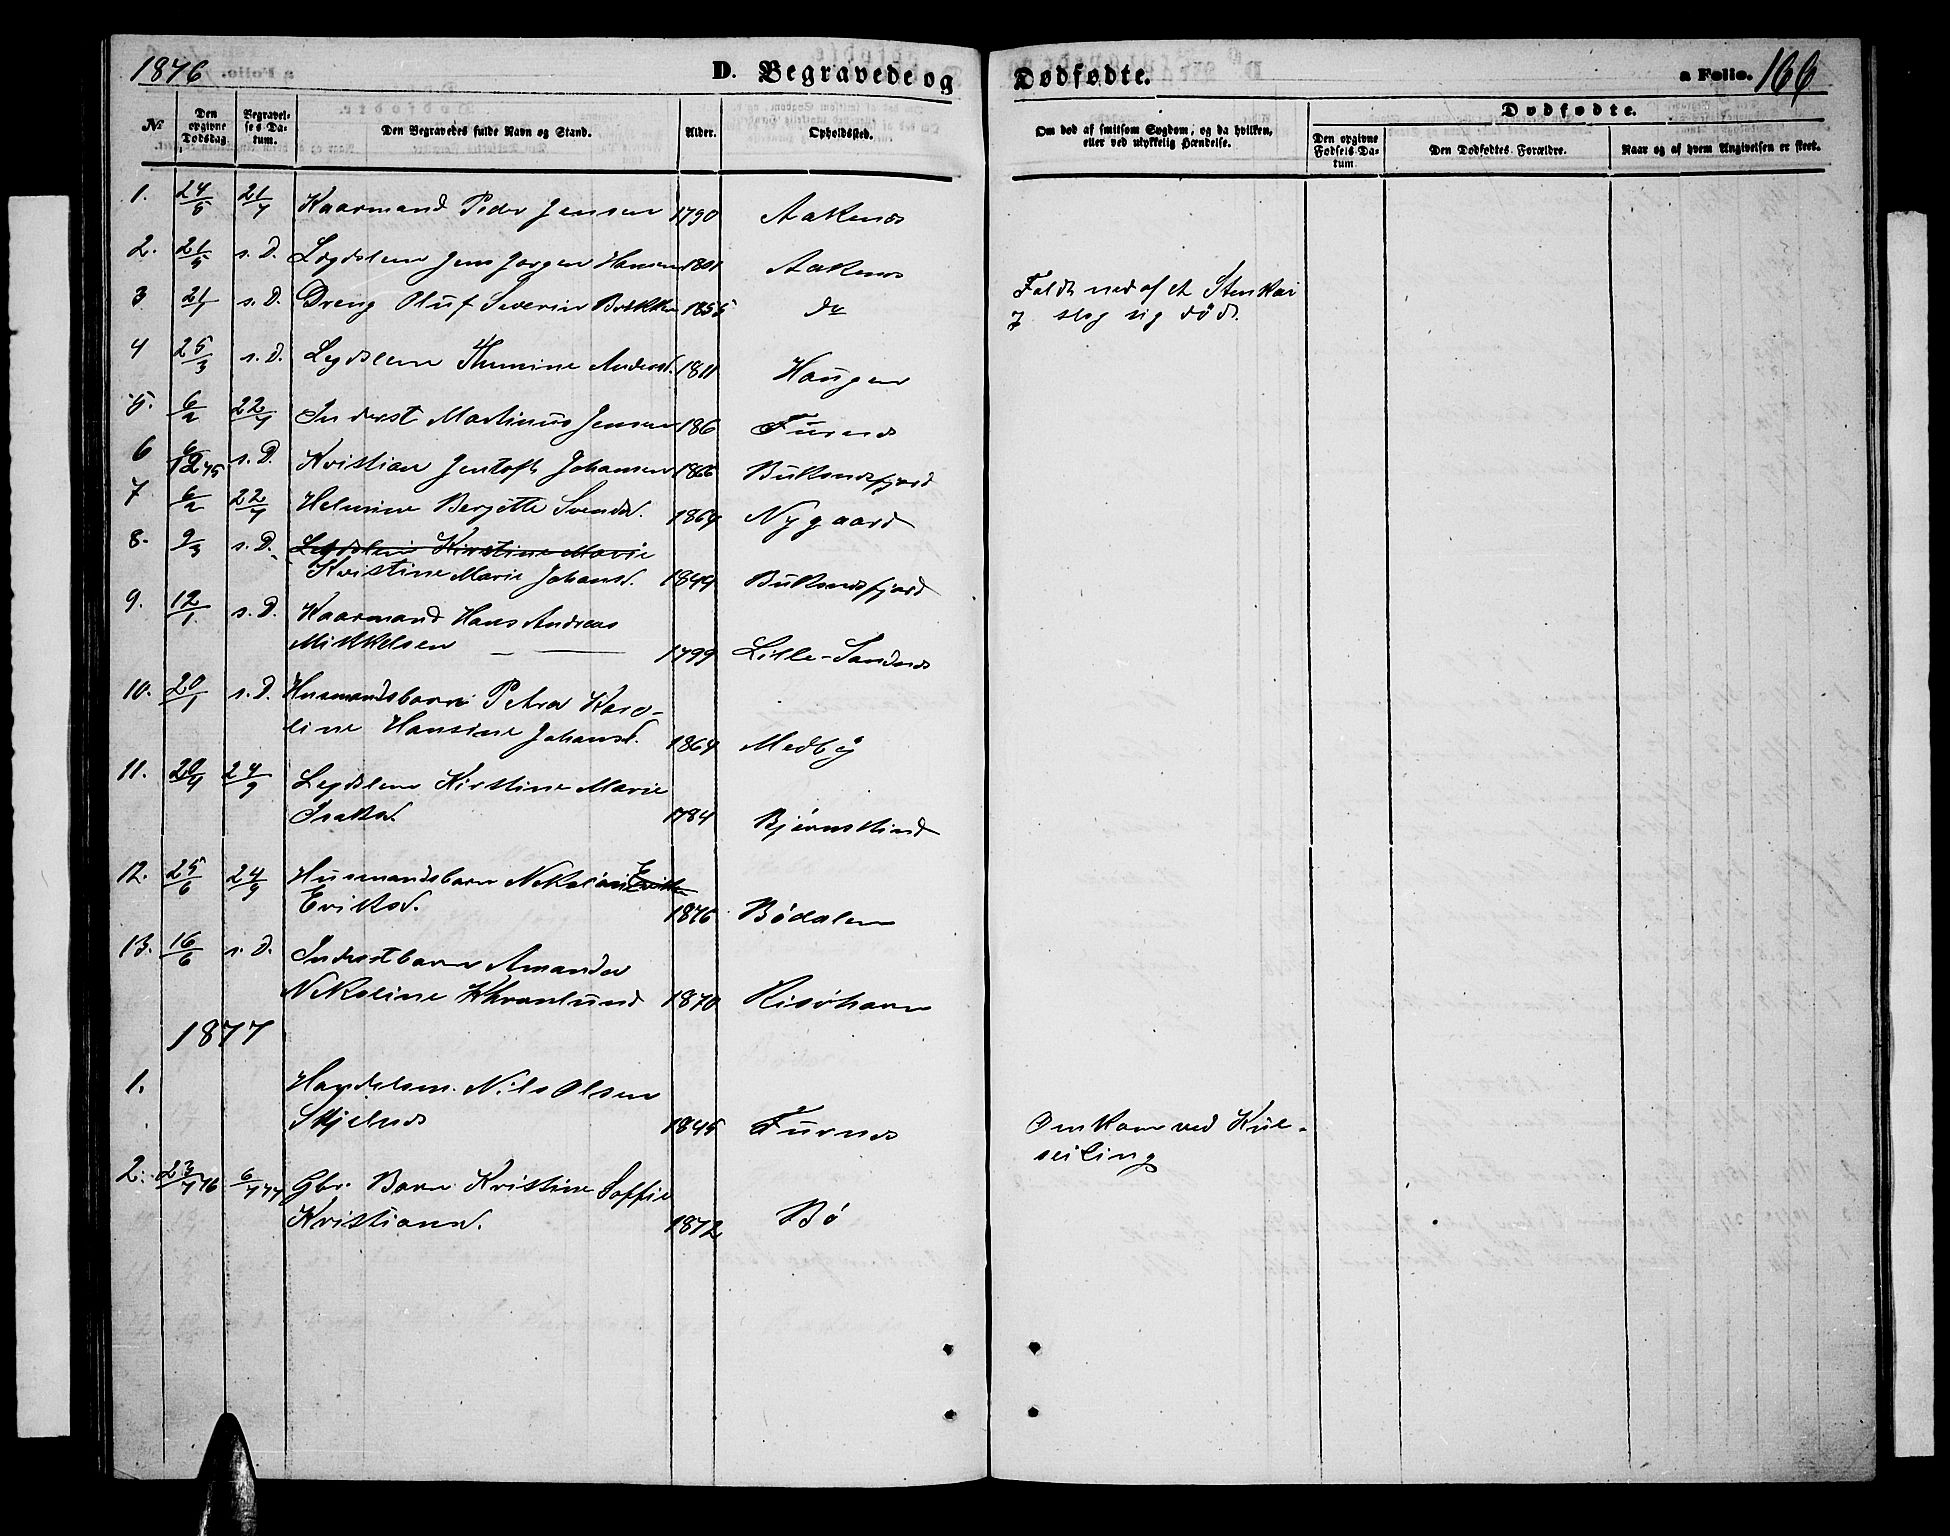 1876
D. Begravede og Dødfødte.
a Folie. 166
№
Den opgivne Dødsdag.
Begravelses Datum.
Den Begravedes fulde Navn og Stand.
Alder.
Opholdssted.
Om død af smitsom Sygdom, og da hvilken, eller ved ulykkelig Hændelse.
Dødfødte.
Den opgivne Fødsels Datum.
Den Dødfødtes Forældre.
Naar og af hvem Angivelsen er skeet.
1. 24/5 21/7 Kaarmand Peder Jensen 1790 Aaknes
2. 21/5 s. D. Lægdslem Jens Jørgen Hansen 1801 Aaknes
3 21/1 s. D. Dreng Oluf Severin Bekken 1855 do Faldt ned af et Stenkar
og slog sig død.
4 25/3 s. D. Legdslem Anders. 1811 Haugen
5. 6/2 22/7 Inderst Martinus Jensen 186 Furnes
6 6/12 75 s. D. Kristian Jentoft Johansen 1866 Buksnesfjord
7 6/2 22/7 Helmine Berjitte Svendsd. 1864 Nygaard
8. 9/3 s. D. Legdslem Kirstine Marie
Kristine Marie Johansd. 1844 Buksnesfjord
9. 12/1 s. D. Kaarmand Hans Andreas
Mikkelsen 1799 Lille-Sandnes
10. 20/1 s. D. Husmandsbarn Petra Karo-
line Hansine Johansd. 1864 Medby
11. 20/4 24/9 Legdslem Kirstine Marie
Isaksd. 1784 Bjørnskind
12. 25/6 24/9 Husmandsbarn
Eriksd. 1876 Bødalen
13. 16/6 s. D. Inderstbarn Amanda
Nekoline 1870 Risøhavn
1877
1. Handelsm. Nils Olsen
Skjelnes 1845 Furnes Omkom ved Kul-
seiling
2. 23/7 76 6/7 77 Gbr. Barn Kristine Soffie
Kristiansd. 1872 Bø